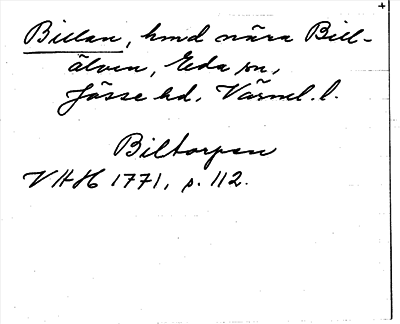 Billan, hmd nära Bill-
älven, Eda sn,
Jösse hd, Värml. l.
Biltorpen
VAH 1771, p. 112.